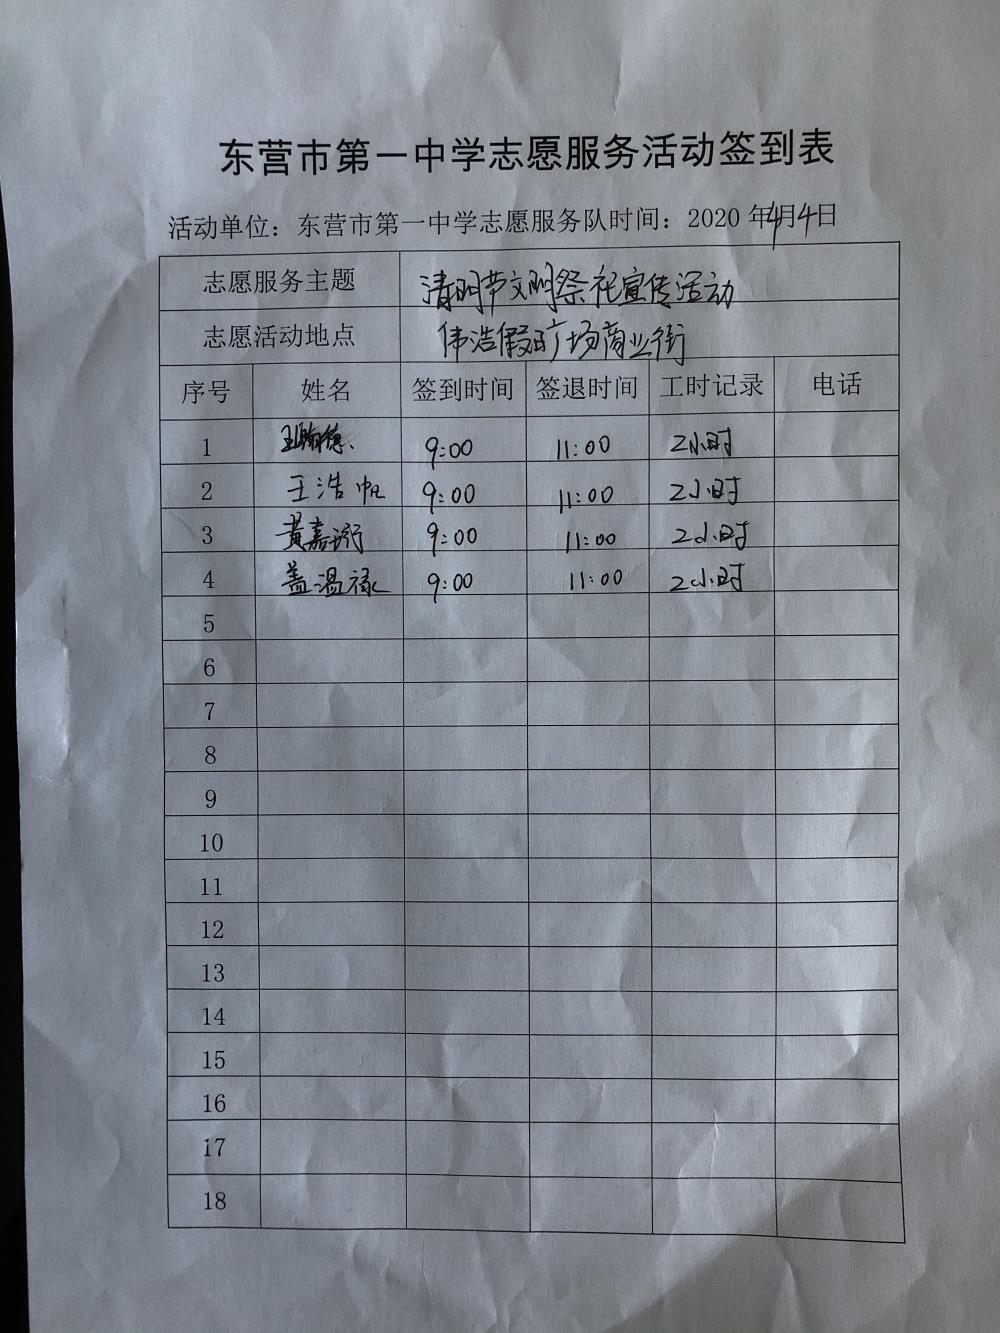 东营市第一中学志愿服务活动签到表
活动单位：东营市第一中学志愿服务队时间：2020 年4月4日
志愿服务主题 清明节文明祭祀宣传活动
志愿活动地点 伟浩假日广场商业街
序号 姓名 签到时间 签退时间 工时记录 电话
1 9:00 11:00 2小时
2 王浩帆 9:00 11:00 2小时
3 黄嘉 9:00 11:00 2小时
4 盖温禄 9:00 11:00 2小时
5
6
7
8
9
10
11
12
13
14
15
16
17
18